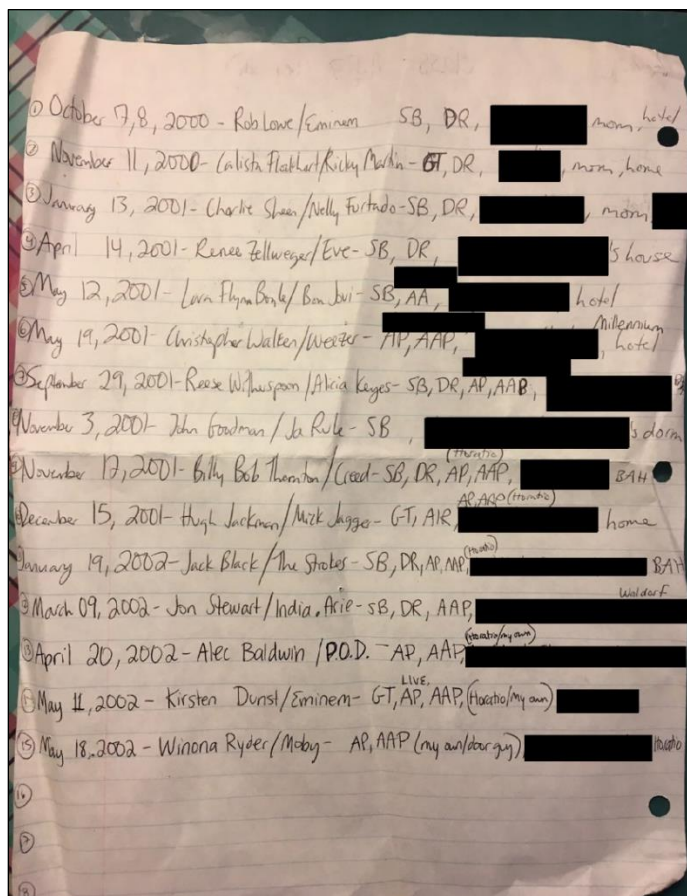 ① October 7,8, 2000 - Rob Lowe/Eminem SB, DR, mom, hotel
② November 11, 2000- Calista Flockhart/Ricky Martin - GT, DR, , mom, home
③ January 13, 2001- Charlie Sheen/Nelly Furtado- SB, DR, , mom
④ April 14, 2001- Renee Zellweger/Eve- SB, DR, 's house
⑤ May 12, 2001- Lara Flynn Boyle/Bon Jovi- SB, AA, hotel
⑥ May 19, 2001- Christopher Walken/Weezer- AP, AAP, Millennium hotel
September 29, 2001-Reese Witherspoon/Alicia Keyes- SB, DR, AP, AAB,
November 3, 2001- John Goodman/Ja Rule- SB , 's dorm
November 12, 2001- Billy Bob Thornton/Creed- SB, DR, AP, AAP, (Horatio) BAH
December 15, 2001- Hugh Jackman/Mick Jagger- GT, AIR, AP, AAP (Horatio) home
January 19, 2002- Jack Black/The Strokes- SB, DR, AP, AAP, (Horatio) BAH
March 09, 2002- Jon Stewart/India.Arie- SB, DR, AAP, Waldorf
⑬ April 20, 2002- Alec Baldwin/P.O.D. - AP, AAP, (Horatio/my own)
May 11, 2002- Kirsten Dunst/Eminem- GT, LIVE, AP, AAP, (Horatio/my own)
⑮ May 18, 2002- Winona Ryder/Moby- AP, AAP (my own/door guy) Horatio
⑯